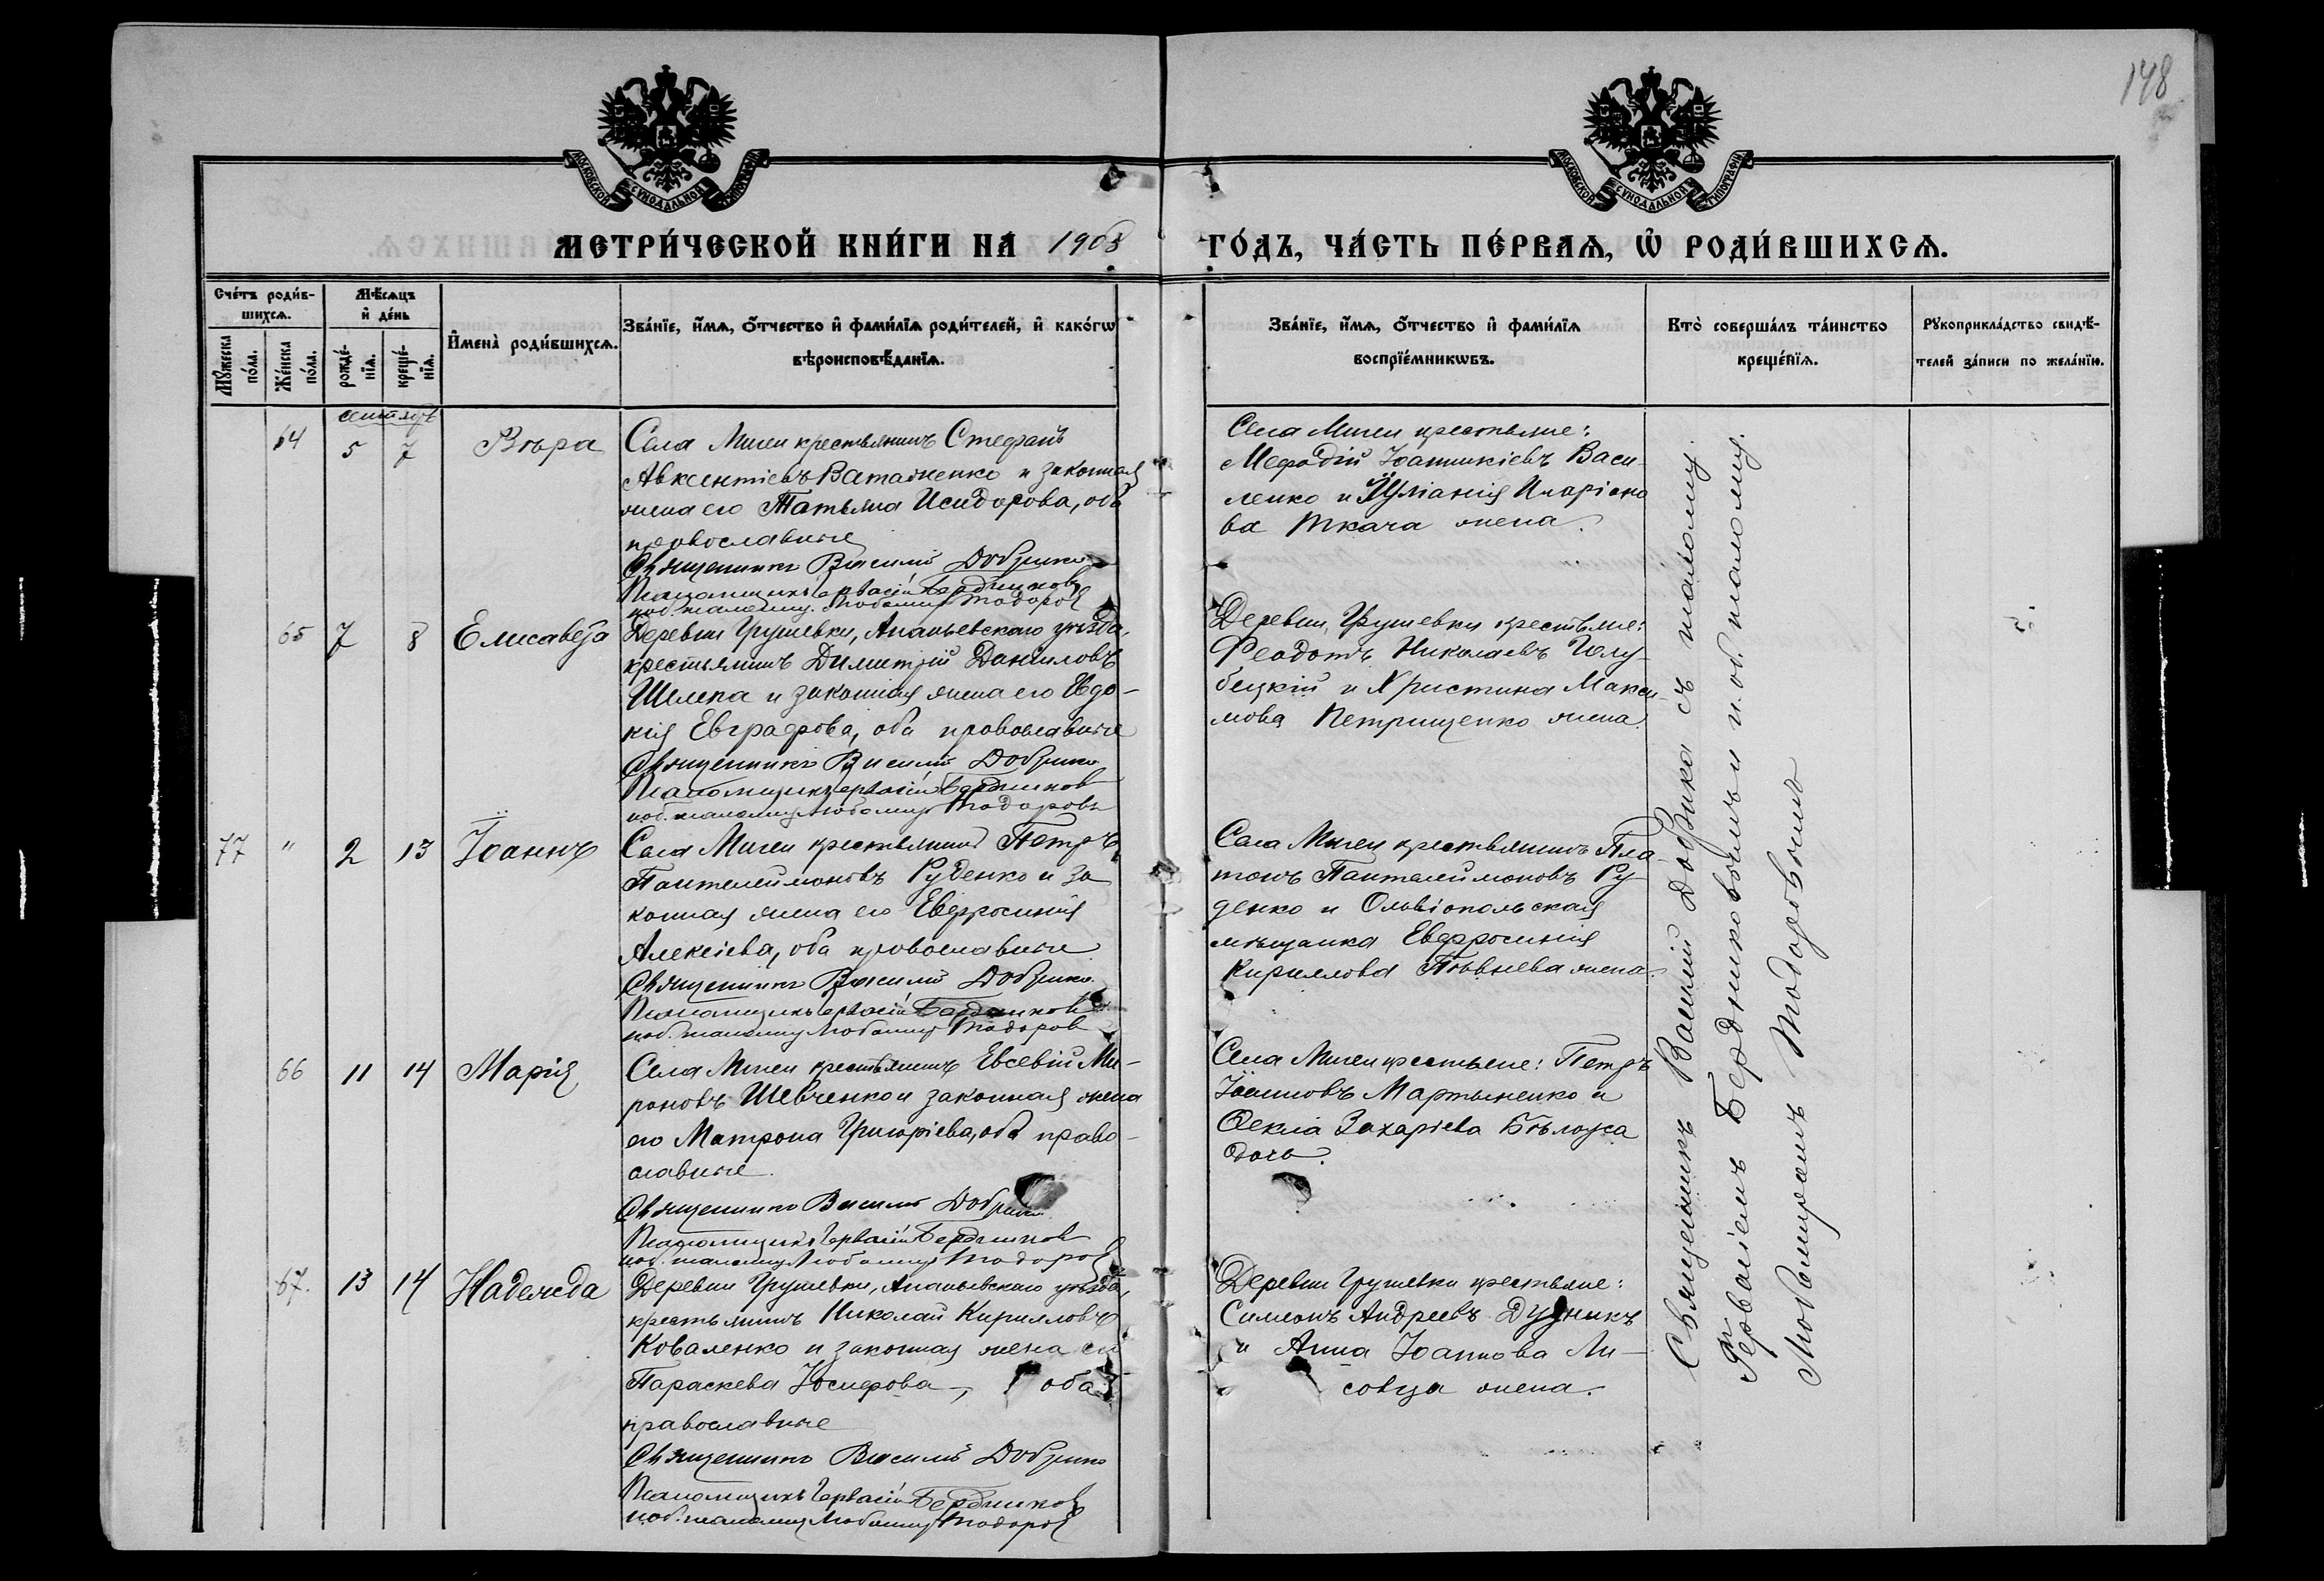 148
МОСКОВСКОЙ СѴНОДАЛЬНОЙ ТИПОГРАФІИ
МОСКОВСКОЙ СѴНОДАЛЬНОЙ ТИПОГРАФІИ
МЕТРИ́ЧЕСКОЙ КНИ́ГИ НА 1908
ГО́ДЪ, ЧА́СТЬ ПЕ́РВАѦ, Ѡ҆ РОДИ́ВШИХСѦ.
Сче́тъ роди́в-
шихсѧ.
Мꙋ́жеска
по́ла.
Же́нска
по́ла.
Мѣ́сѧцъ
и҆ де́нь
рожде́-
нїѧ.
креще́-
нїѧ.
И҆мена̀ роди́вшихсѧ.
Зва́нїе, и҆́мѧ, ѻ҆́тчество и҆ фами́лїѧ роди́телей, и҆ како́гѡ
вѣроисповѣ́данїѧ.
Зва́нїе, и҆́мѧ, ѻ҆́тчество и҆ фами́лїѧ
воспрїе́мникѡвъ.
Кто̀ соверша́лъ та́инство
креще́нїѧ.
Рꙋкоприкла́дство свидѣ́-
телей за́писи по жела́нїю.
сентябрь
64 5 7 Вѣра
Села Мигеи крестьянинъ Стефанъ
Авксентіевъ Ватаженко и законная
жена его Татьяна Исидорова, оба
православные
Священникъ Василій Добрико
Псаломщикъ Гервасій Бердниковъ
и.об. псаломщ. Любомиръ Тодоровъ
Села Мигеи крестьяне:
Мефодій Іоанникіевъ Васи-
ленко и Іуліанія Иларіоно
ва Ткача жена.
65 7 8 Елисавета
Деревни Грушевки, Ананьевскаго уѣзда,
крестьянинъ Димитрій Даніиловъ
Шлепа и законная жена его Евдо-
кія Евграфова, оба православные
Священникъ Василій Добрико
Псаломщикъ Гервасій Бердниковъ
и.об. псаломщ. Любомиръ Тодоровъ
Деревни Грушевки крестьяне:
Феодотъ Николаевъ Голу-
бецкій и Христина Макси-
мова Петрищенко жена.
77 " 2 13 Іоаннъ
Села Мигеи крестьянинъ Петръ
Пантелеимоновъ Руденко и за
конная жена его Евфросинія
Алексіева, оба православные
Священникъ Василій Добрико
Псаломщикъ Гервасій Бердниковъ
и.об. псаломщ. Любомиръ Тодоровъ
Села Мигеи крестьянинъ Пла-
тонъ Пантелеимоновъ Ру-
денко и Ольвіопольская
мѣщанка Евфросинія
Кириллова жена.
66 11 14 Марія
Села Мигеи крестьянинъ Евсевій Ми-
роновъ Шевченко и законная жена
его Матрона Григоріева, оба право-
славные.
Священникъ Василій Добрико
Псаломщикъ Гервасій Бердниковъ
и.об. псаломщ. Любомиръ Тодоровъ
Села Мигеи крестьяне: Петръ
Іоанновъ Мартыненко и
Ѳекла Захаріева Бѣлоуса
дочь.
67. 13 14 Надежда
Деревни Грушевки, Ананьевскаго уѣзда,
крестьянинъ Николай Кирилловъ
Коваленко и законная жена его
Параскева Іосифова, оба
православные
Священникъ Василій Добрико
Псаломщикъ Гервасій Бердниковъ
и.об. псаломщ. Любомиръ Тодоровъ
Деревни Грушевки крестьяне:
Симеонъ Андреевъ Дудникъ
и Анна Іоаннова Ли-
совца жена.
Священникъ Василій Добрико съ псаломщ.
Гервасіемъ Бердниковымъ и и.об. псаломщ.
Любомиромъ Тодоровымъ